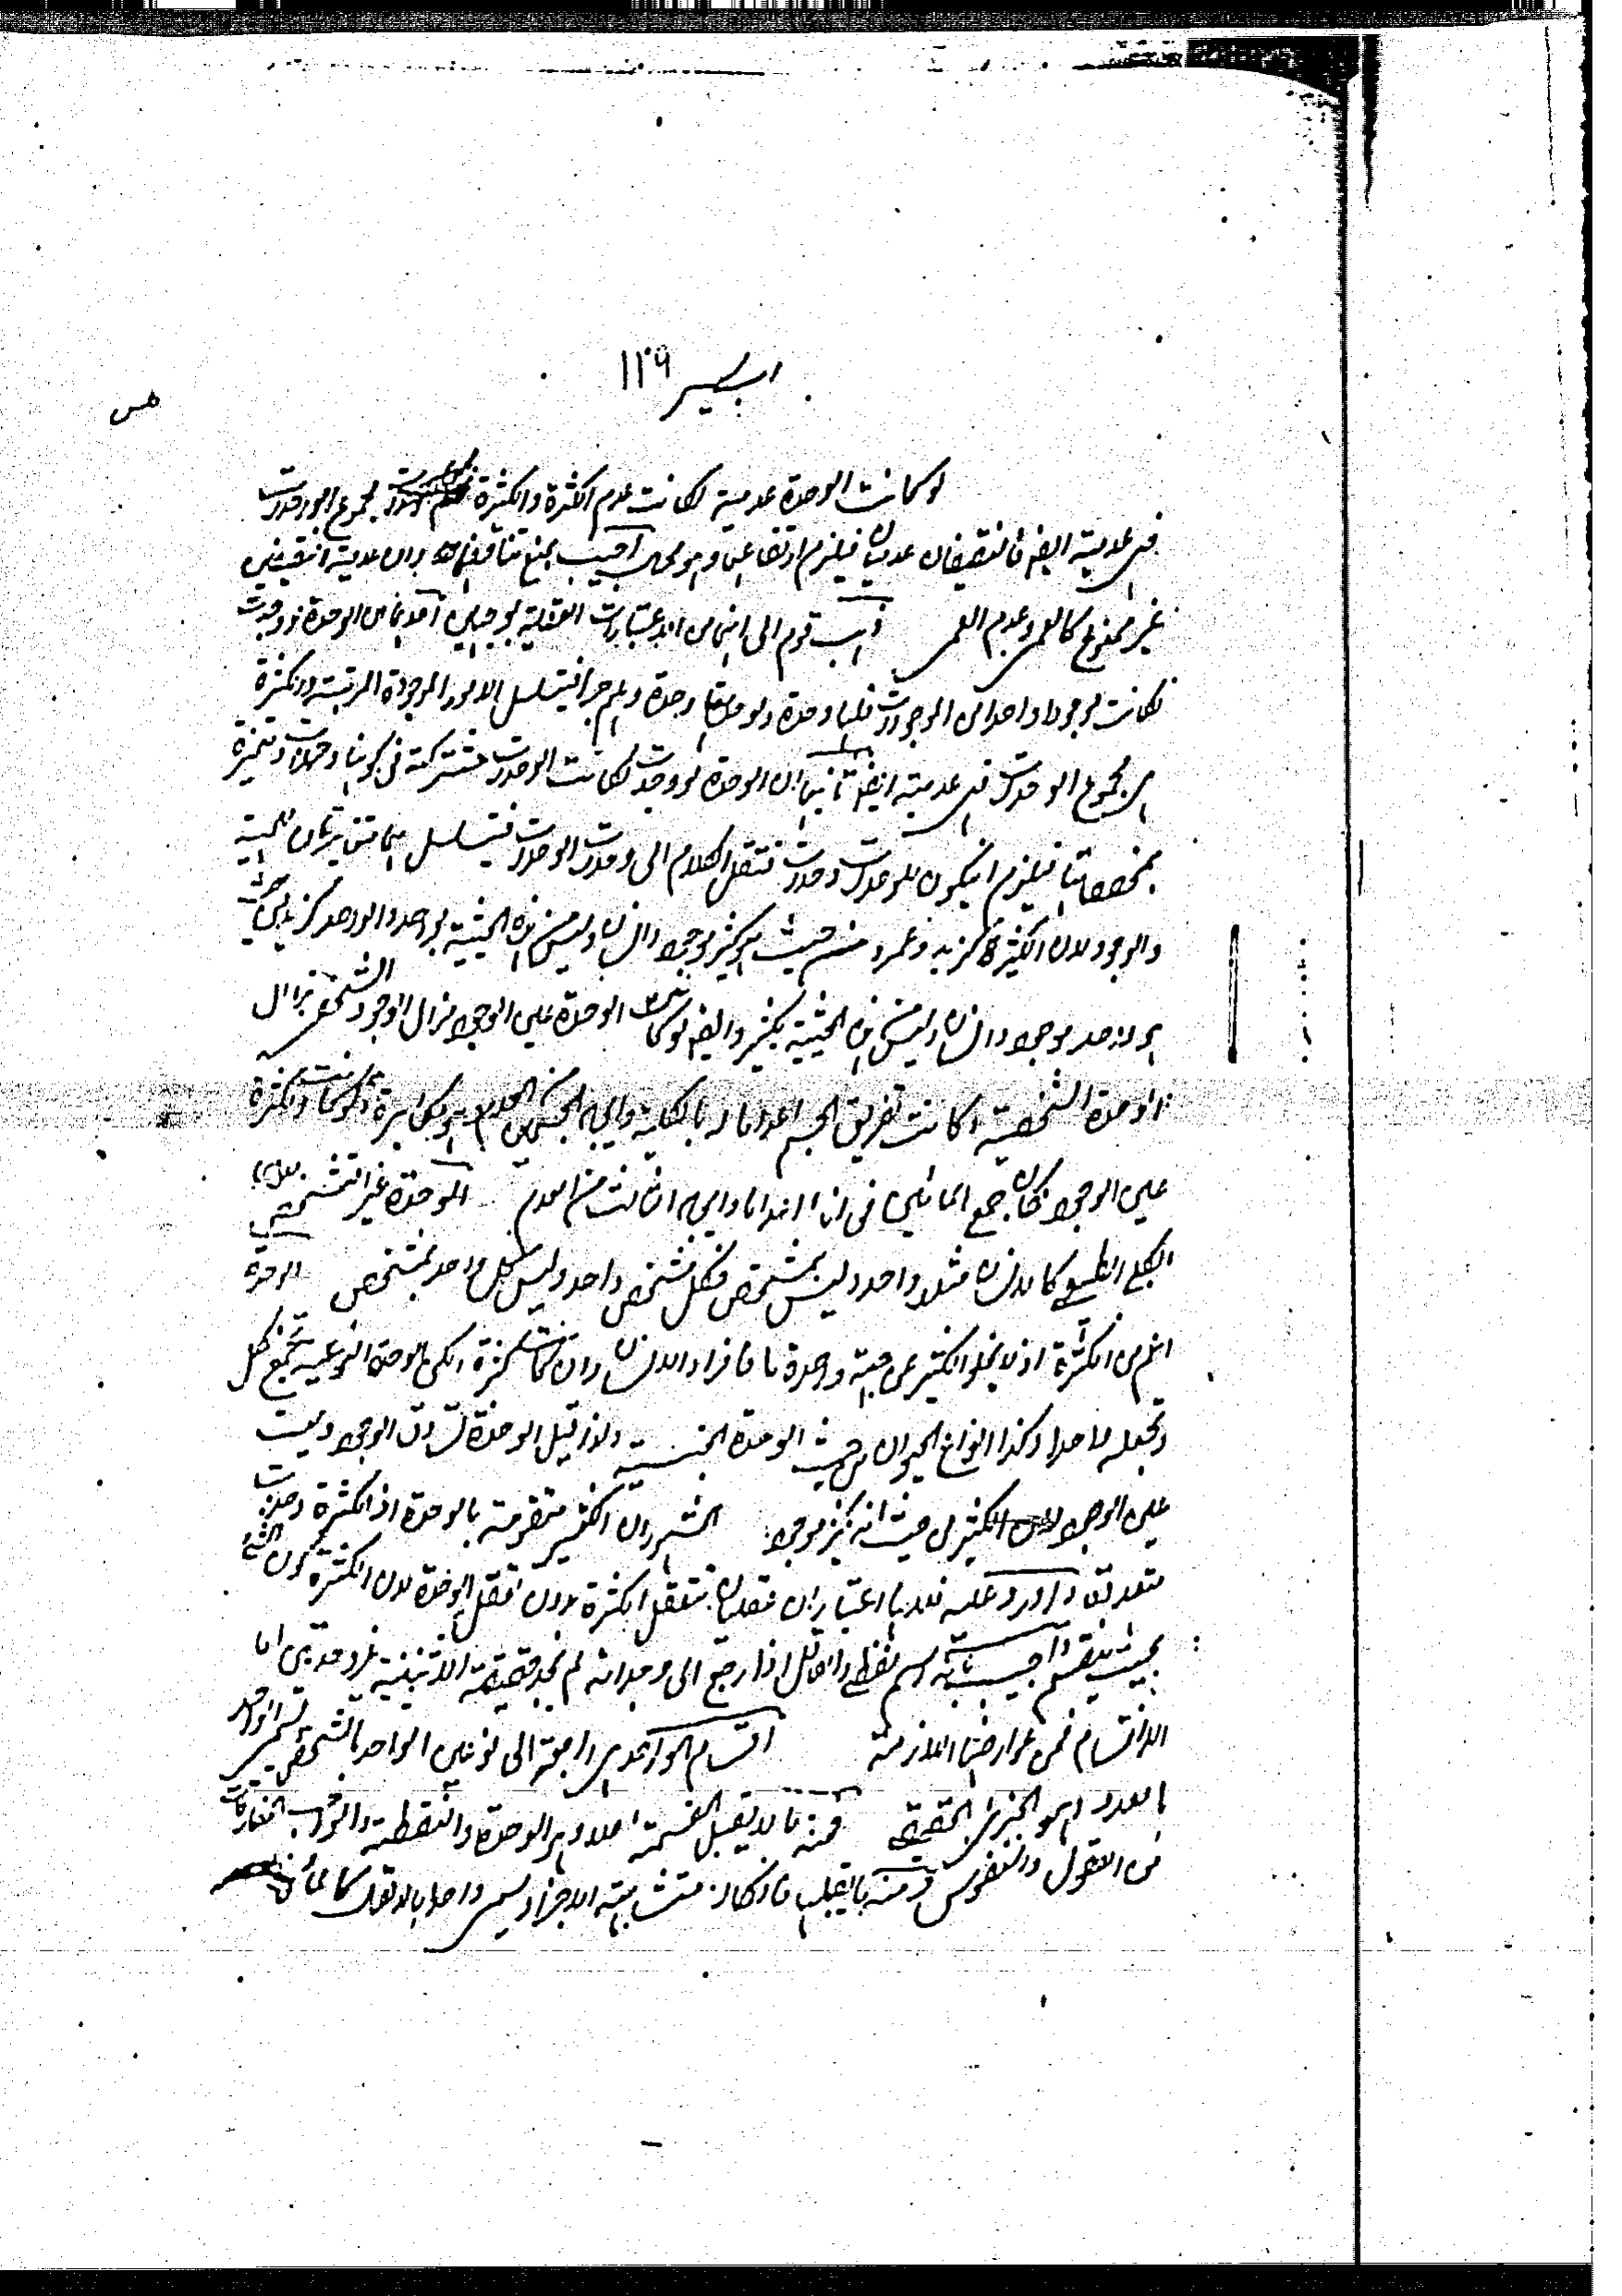 ١١٢٩
لو كانت الوحدة عدمية لكانت عدم الكثرة والكثرة مجموع الوحدات
فهي عدمية ايضا فالنقيضان عدميان فيلزم ارتفاعهما وهو محال اجيب بمنع تناقضهما وان عدمية النقيضين
غير ممنوع كالعمى وعدم العمى ذهب قوم الى انهما من الاعتبارات العقلية لوجهين احدهما ان الوحدة لو وجدت
لكانت موجودا واحدا من الموجودات فلها وحدة ولوحدتها وحدة وهلم جرا فيتسلسل الامور الموجودة المرتبة والكثرة
هي مجموع الوحدات فهي عدمية ايضا ثانيهما ان الوحدة لو وجدت لكانت الوحدات مشتركة في كونها وحدات ومتميزة
بخصوصياتها فيلزم ان يكون للوحدات وحدات فننقل الكلام الى وحدات الوحدات فيتسلسل هما متغايرتان للمهية
والوجود لان الكثيرة كزيد وعمرو من حيث هو كثير موجود وانسان وليس من هذه الحيثية بواحد والواحد كزيد
هو واحد موجود وانسان وليس من هذه الحيثية بكثير وايضا لو كانت الوحدة عين الوجود فزال الوجود الشخصي بزوال
الوحدة الشخصية لكانت تفريق الجسم اعداما له بالكلية وايجاد الجسمين من العدم وهو مكابرة ولو كانت الكثرة
عين الوجود لكان جمع المائين في اناء اعداما وايجاد ثالث من العدم الوحدة غير التشخص
الكلي الطبيعي كالانسان مثلا واحد وليس بمشخص فكل مشخص واحد وليس كل واحد بمشخص الوحدة
اعم من الكثرة اذ لا يخلو الكثير عن جهة وحدة ما فافراد الانسان وان كانت كثيرة لكن الوحدة النوعية تجمع كل
وتجعله واحدا وكذا انواع الحيوان من حيث الوحدة الجنسية ولذا قيل الوحدة تساوق الوجود وليست
عين الوجود لان الكثير من حيث انه كثير موجود المشهور ان الكثير متقومة بالوحدة اذ الكثرة وحدات
متعددة واورد عليه بانهما اعتباران عقليان تتعقل الكثرة بدون تعقل الوحدة لان الكثرة كون الشئ
بحيث ينقسم واجيب بانه رسم لفظي والعاقل اذا رجع الى وجدانه لم يجد حقيقة الاثنينية غير وحدتين اما
الانقسام فمن عوارضها اللازمة اقسام الواحد هي راجعة الى نوعين الواحد بالشخص يسمى الواحد
بالعدد وهو الجزئي الحقيقي فمنه ما لا يقبل القسمة اصلا وهو الوحدة والنقطة والذوات المفارقات
من العقول والنفوس ومنه ما يقبلها فان كان متشابهة الاجزاء يسمى واحدا بالاتصال كالماء